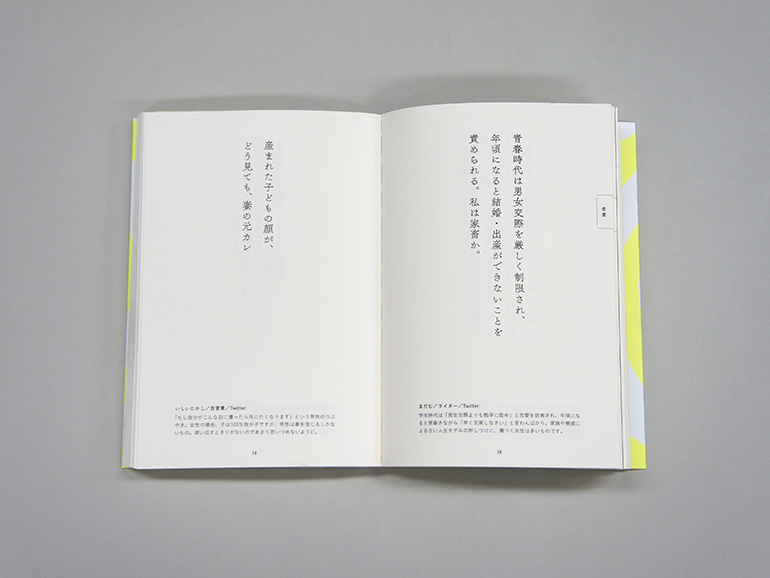 青春時代は男女交際を厳しく制限され、
年頃になると結婚・出産ができないことを
責められる。私は家畜か。
恋愛
まだむ/ライター/Twitter
学生時代は「男女交際よりも勉学に励め」と恋愛を妨害され、年頃にな
ると家畜さながら「早く交尾しなさい」と言わんばかり。家族や親戚に
よる古い人生モデルの押しつけに、傷つく女性は多いものです。
18
産まれた子どもの顔が、
どう見ても、妻の元カレ
いしいたかし/自営業/Twitter
「もし自分がこんな目に遭ったら死にたくなります」という男性のつぶ
やき。女性の場合、子は100%我が子ですが、男性は妻を信じるしかな
いもの。疑い出すときりがないのであまり思いつめないように。
19